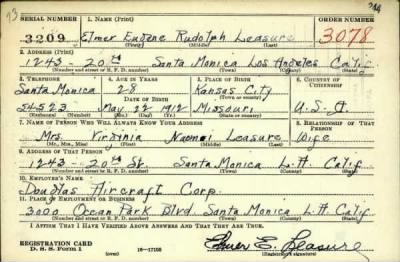 13
244
SERIAL NUMBER 1. Name (Print) ORDER NUMBER
3209 Elmer Eugene Rudolph Leasure 3078
(First) (Middle) (Last)
2. Address (Print)
1243 - 20th Santa Monica Los Angeles Calif.
(Number and street or R. F. D. number) (Town) (County) (State)
3. Telephone 4. Age in Years 5. Place of Birth 6. Country of Citizenship
Santa Monica 28 Kansas City
(Town or county)
Date of Birth
54523 May 22 1912 Missouri U.S.A.
(Exchange) (Number) (Mo.) (Day) (Yr.) (State or country)
7. Name of Person Who Will Always Know Your Address 8. Relationship of That Person
Mrs. Virginia Naomi Leasure Wife
(Mr., Mrs., Miss) (First) (Middle) (Last)
9. Address of That Person
1243 - 20th St. Santa Monica L.A. Calif
(Number and street or R. F. D. number) (Town) (County) (State)
10. Employer's Name
Douglas Aircraft Corp.
11. Place of Employment or Business
3000 Ocean Park Blvd. Santa Monica L.A. Calif
(Number and street or R. F. D. number) (Town) (County) (State)
I Affirm That I Have Verified Above Answers and That They Are True.
REGISTRATION CARD
D. S. S. Form 1 (over) 16-17105 Elmer E. Leasure
(Registrant's signature)